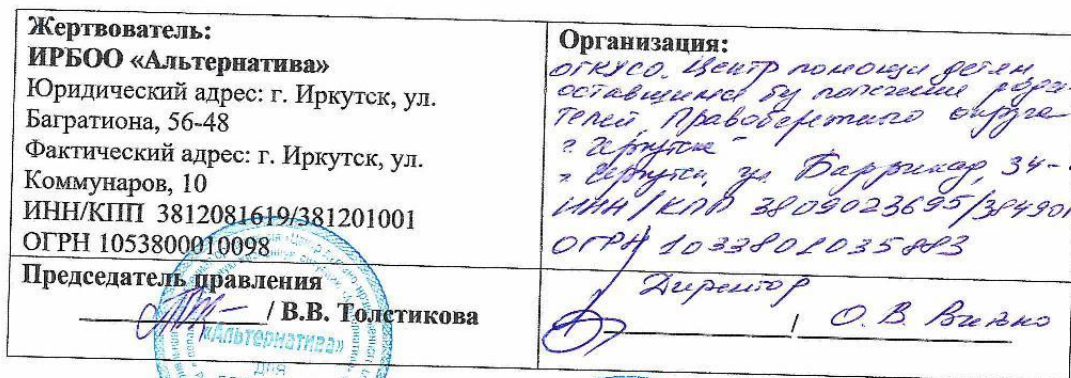 Жертвователь:
ИРБОО «Альтернатива»
Юридический адрес: г. Иркутск, ул.
Багратиона, 56-48
Фактический адрес: г. Иркутск, ул.
Коммунаров, 10
ИНН/КПП 3812081619/381201001
ОГРН 1053800010098
Председатель правления
/ В.В. Толстикова
«Альтернатива»
для
Организация:
ОГКУСО. Центр помощи детям,
оставшимся без попечения роди-
телей, Правобережного округа
г. Иркутска
г. Иркутск, ул. Баррикад, 34-
ИНН/КПП 3809023695/384901
ОГРН 1033801035883
Директор
/ О.В.